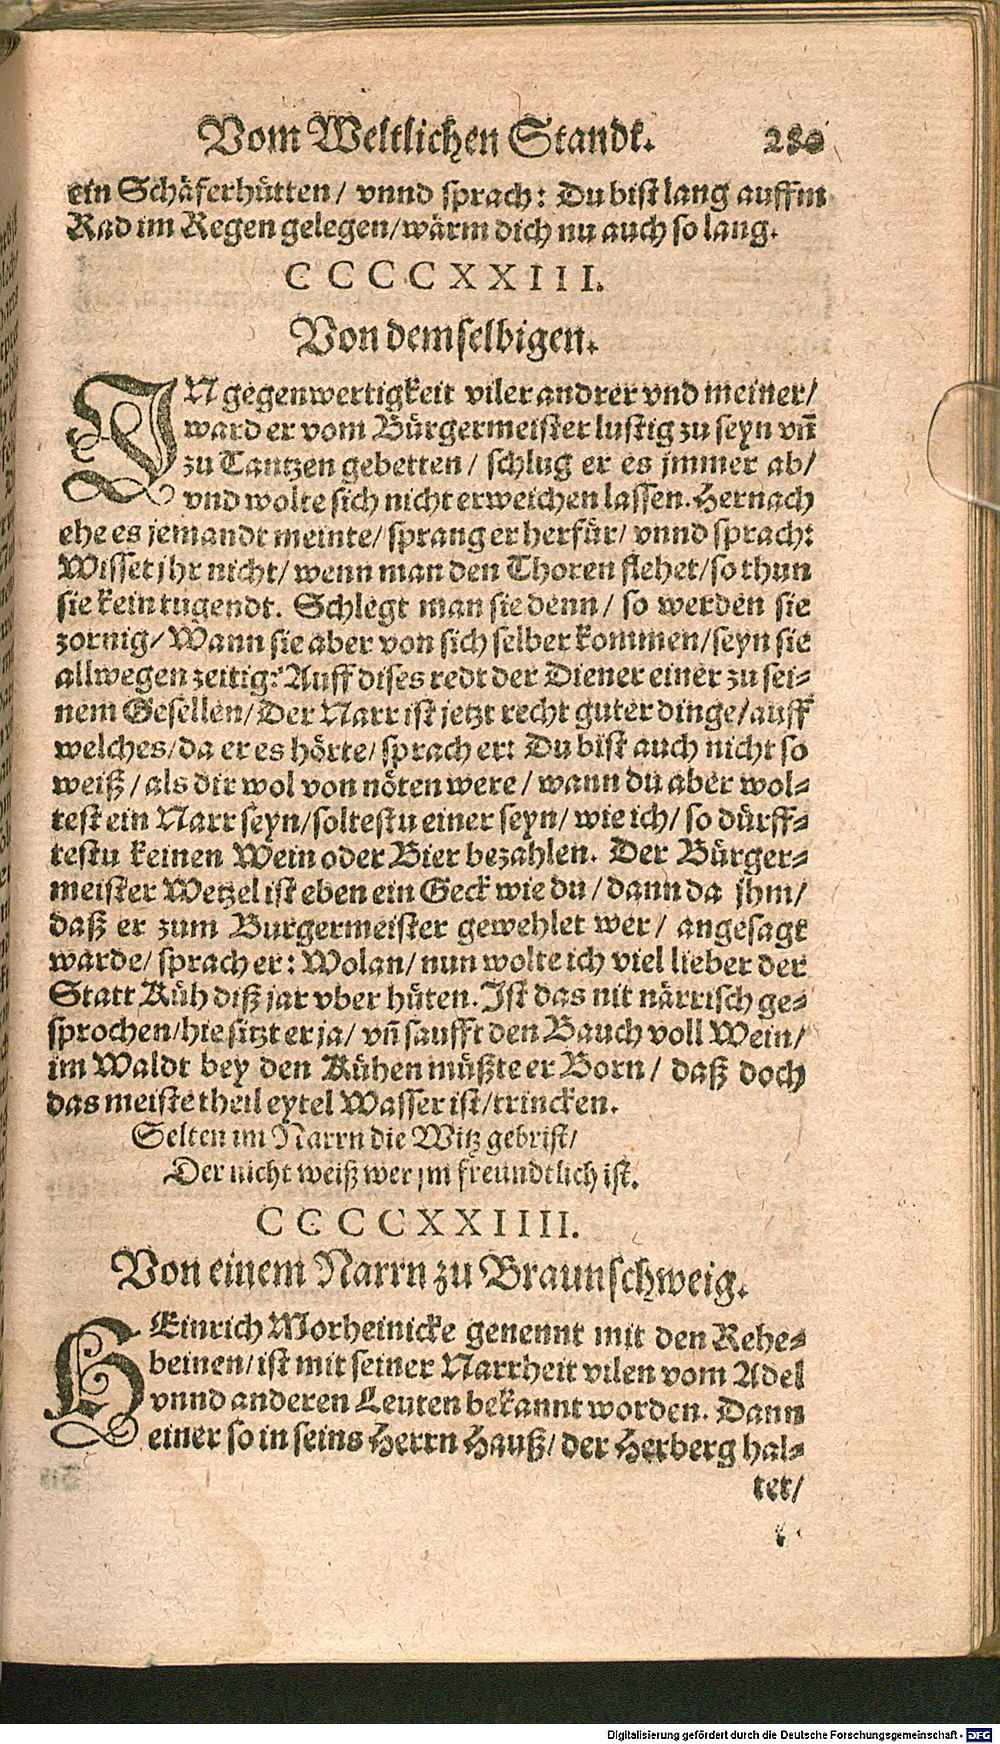 Vom Weltlichen Standt. 280
ein Schäferhütten/ vnnd sprach: Du bist lang auffm
Rad im Regen gelegen/wärm dich nu auch so lang.
CCCCXXIII.
Von demselbigen.
IN gegenwertigkeit viler andrer vnd meiner/
ward er vom Bürgermeister lustig zu seyn vñ
zu Tantzen gebetten/ schlug er es jmmer ab/
vnd wolte sich nicht erweichen lassen. Hernach
ehe es jemandt meinte/ sprang er herfür/ vnnd sprach:
Wisset jhr nicht/ wenn man den Thoren flehet/so thun
sie kein tugendt. Schlegt man sie denn/ so werden sie
zornig/ Wann sie aber von sich selber kommen/seyn sie
allwegen zeitig: Auff dises redt der Diener einer zu sei-
nem Gesellen/Der Narr ist jetzt recht guter dinge/auff
welches/da er es hörte/ sprach er: Du bist auch nicht so
weiß/ als dir wol von nöten were/ wann du aber wol-
test ein Narr seyn/soltestu einer seyn/ wie ich/ so dürff-
testu keinen Wein oder Bier bezahlen. Der Bürger-
meister Wetzel ist eben ein Geck wie du/dann da jhm/
daß er zum Burgermeister gewehlet wer/ angesagt
warde/ sprach er: Wolan/ nun wolte ich viel lieber der
Statt Küh diß jar vber hüten. Ist das nit närrisch ge-
sprochen/hie sitzt er ja/ vñ saufft den Bauch voll Wein/
im Waldt bey den Kühen müßte er Born/ daß doch
das meiste theil eytel Wasser ist/trincken.
Selten im Narrn die Witz gebrist/
Der nicht weiß wer jm freundtlich ist.
CCCCXXIIII.
Von einem Narrn zu Braunschweig.
HEinrich Morheinicke genennt mit den Rehe-
beinen/ist mit seiner Narrheit vilen vom Adel
vnnd anderen Leuten bekannt worden. Dann
einer so in seins Herrn Hauß/ der Herberg hal-
tet/
Digitalisierung gefördert durch die Deutsche Forschungsgemeinschaft - DFG